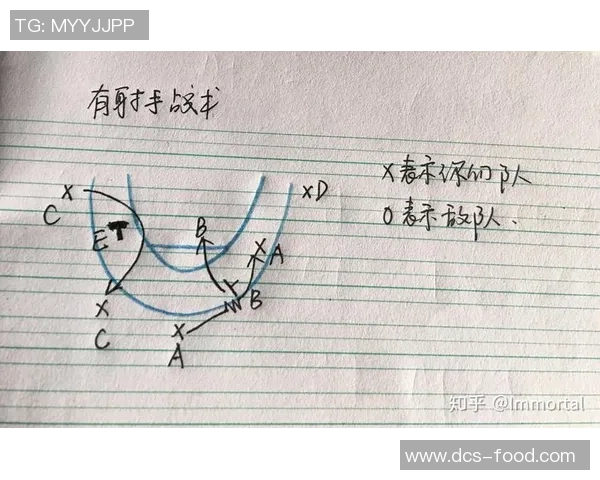 TG: MYYJJPP
有射手战术
X表示你们队
O表示敌队.
X
C
E
B
X
A
X D
X
C
B
X
A
知乎 @Immortal
www.dcs-food.com